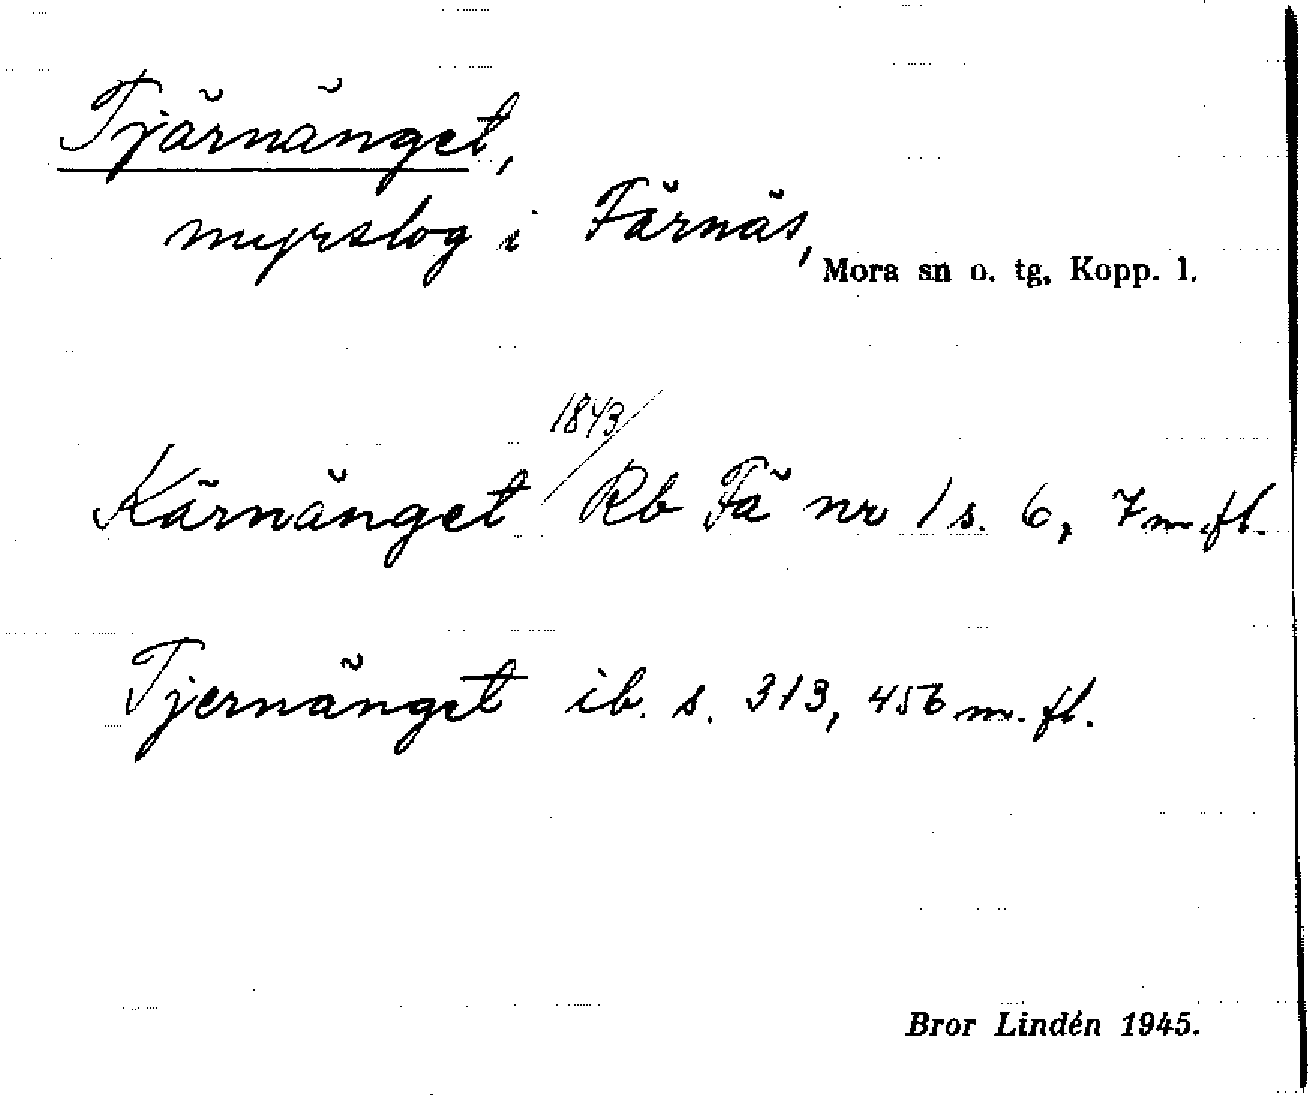 Tjärnänget,
myrslog i Färnäs,
Mora sn o. tg, Kopp. l.
1843/
Kärnänget Rb Fä nr 1 s. 6, 7 m. fl.
Tjernänget ib. s. 313, 456 m. fl.
Bror Lindén 1945.